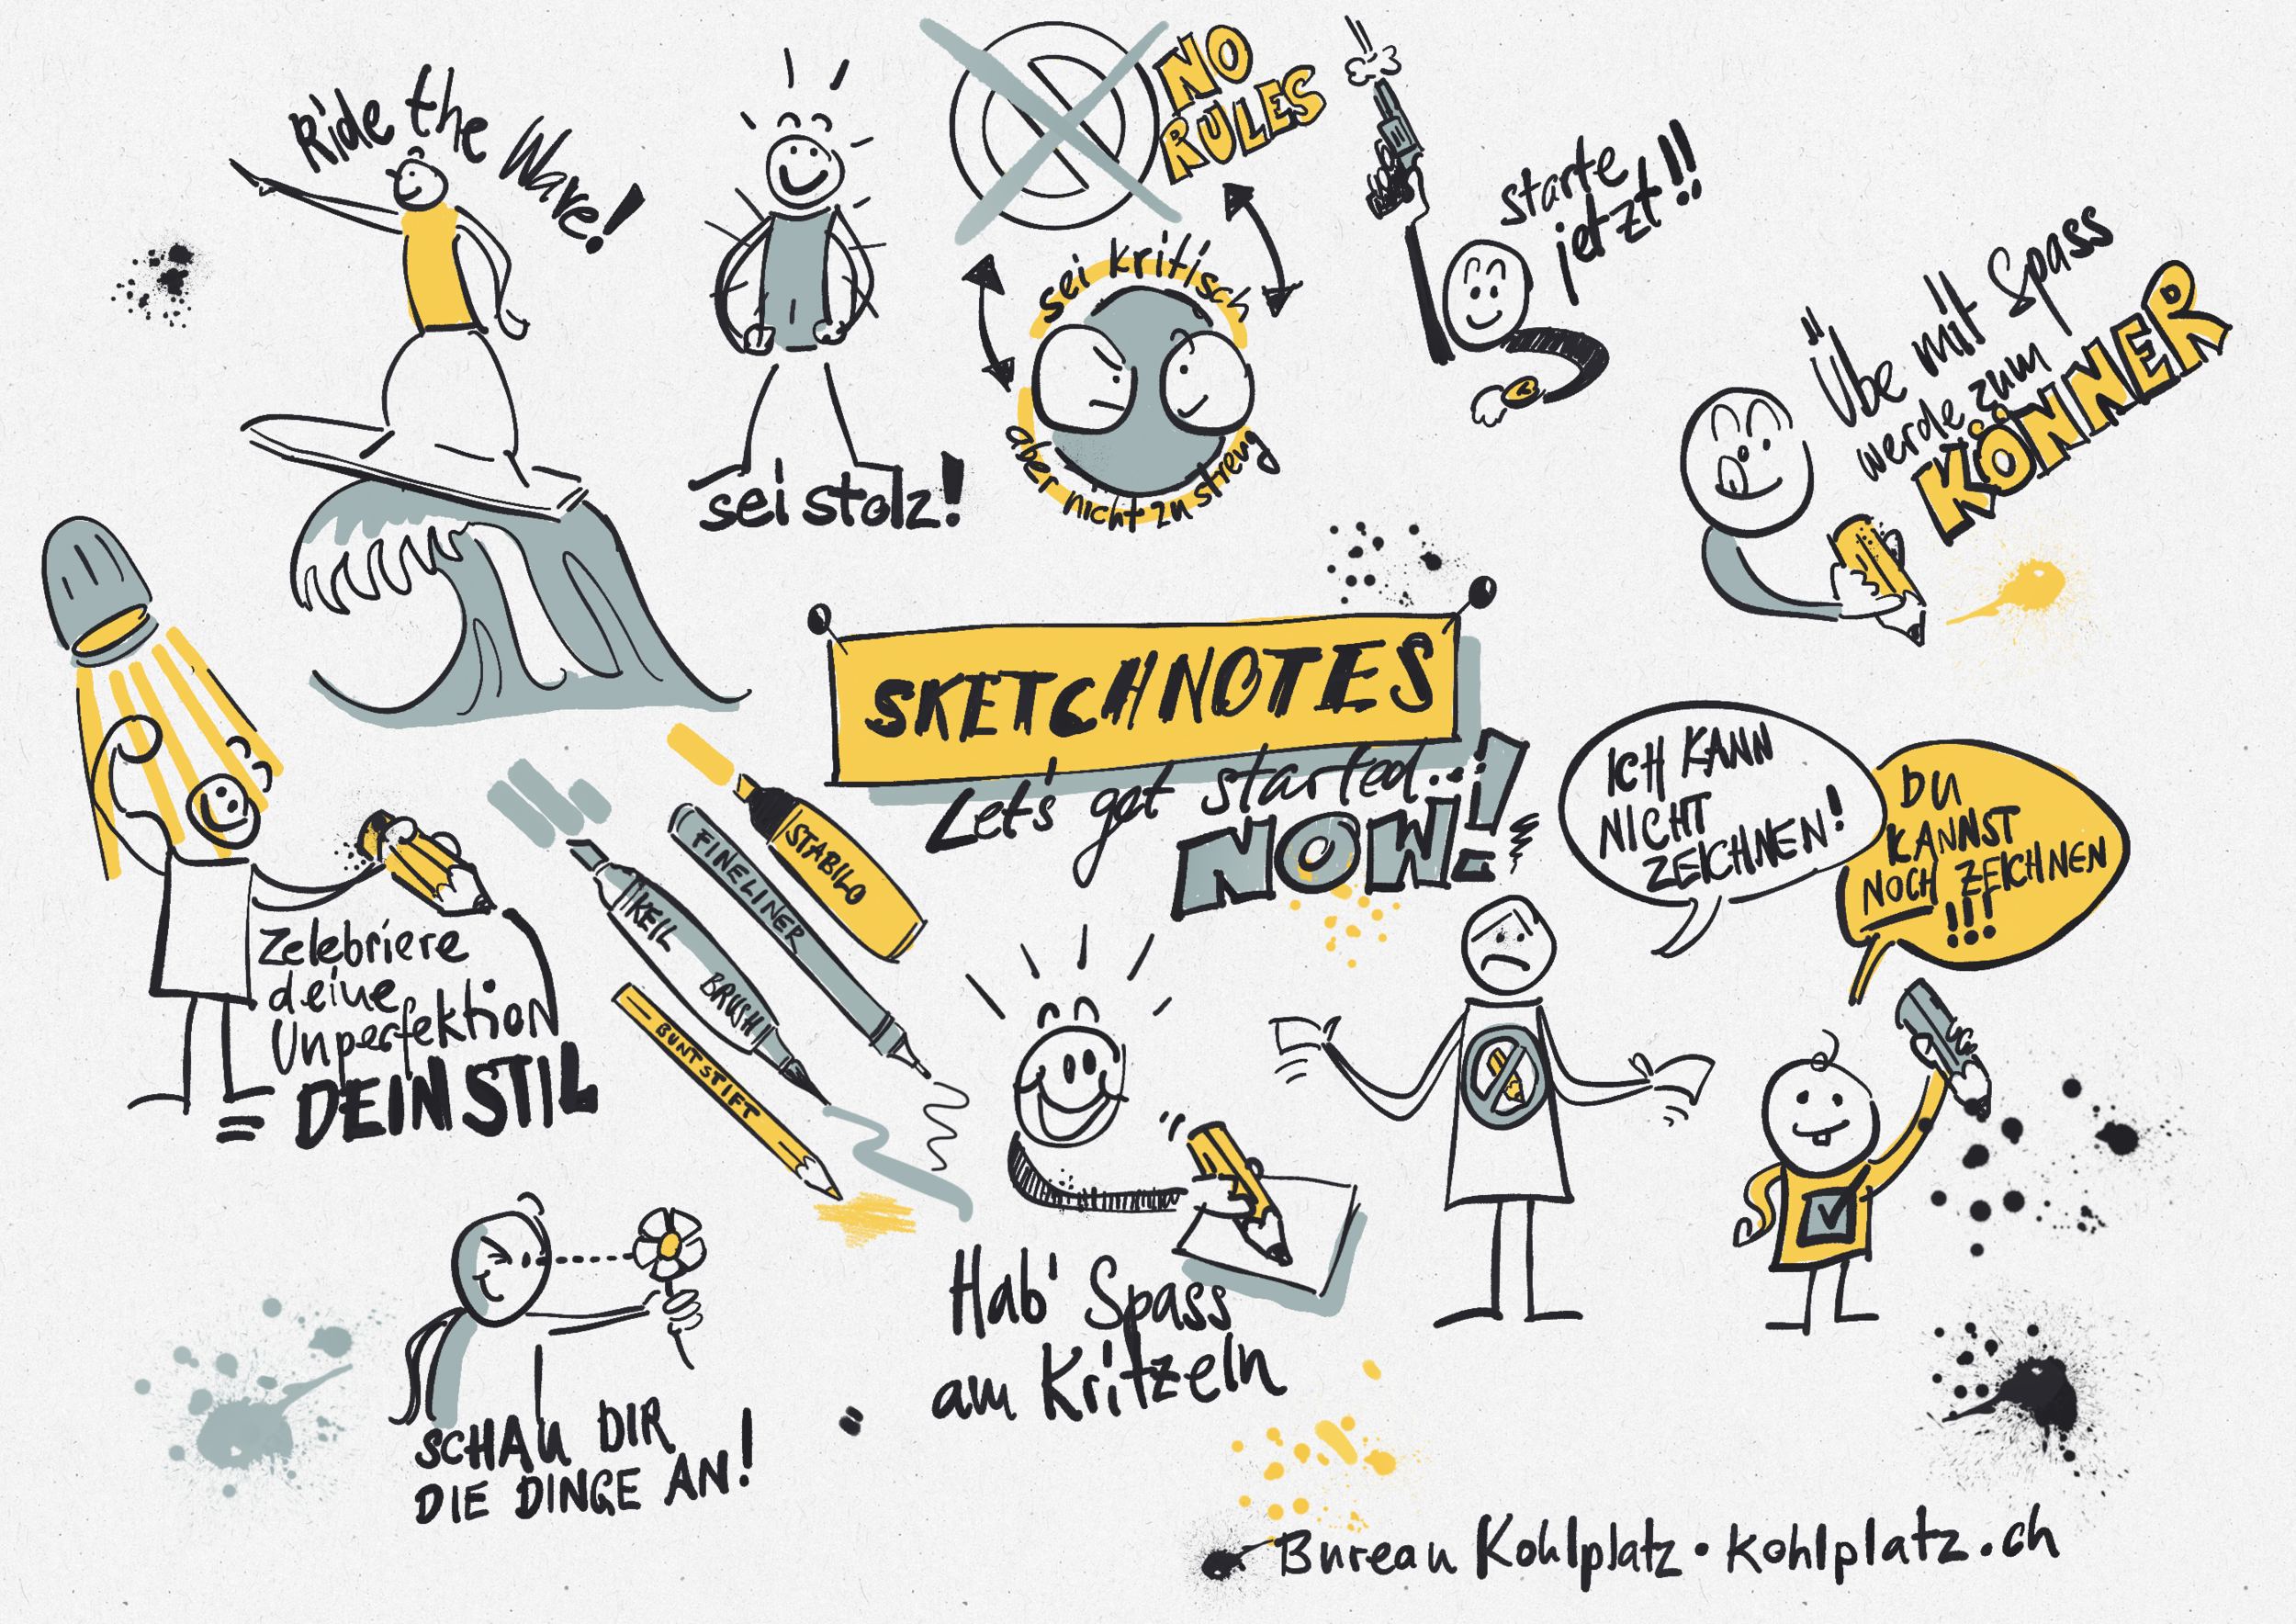 Ride the Wave!
sei stolz!
NO
RULES
sei kritisch
aber nicht zu streng
starte
jetzt!!
Übe mit Spass
werde zum
KÖNNER
SKETCHNOTES
Let's get started...
NOW!
ICH KANN
NICHT
ZEICHNEN!
DU
KANNST
NOCH ZEICHNEN
!!!
Zelebriere
deine
Unperfektion
= DEIN STIL
STABILO
FINELINER
KEIL
BRUSH
BUNTSTIFT
Hab' Spass
am Kritzeln
SCHAU DIR
DIE DINGE AN!
Bureau Kohlplatz • kohlplatz.ch